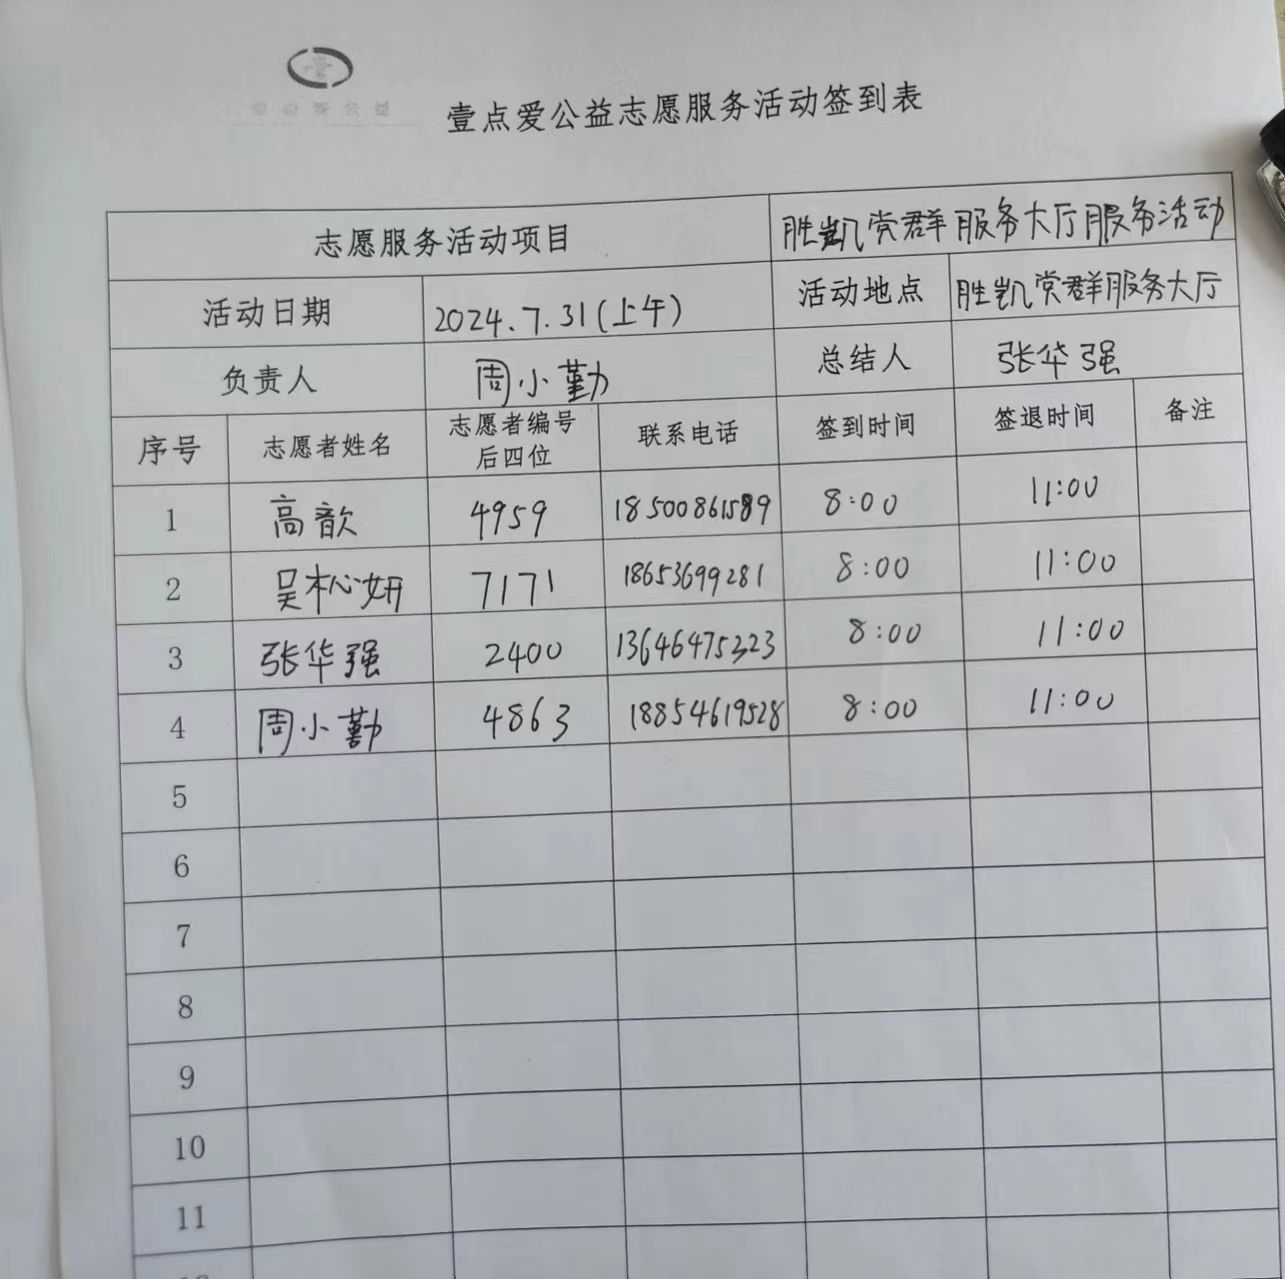 壹点爱公益志愿服务活动签到表
志愿服务活动项目 胜凯党群服务大厅服务活动
活动日期 2024.7.31(上午) 活动地点 胜凯党群服务大厅
负责人 周小勤 总结人 张华强
序号 志愿者姓名 志愿者编号 联系电话 签到时间 签退时间 备注
后四位
1 高歆 4959 18500861589 8:00 11:00
2 吴杺妍 7171 18653699281 8:00 11:00
3 张华强 2400 13646475323 8:00 11:00
4 周小勤 4863 18854619528 8:00 11:00
5
6
7
8
9
10
11